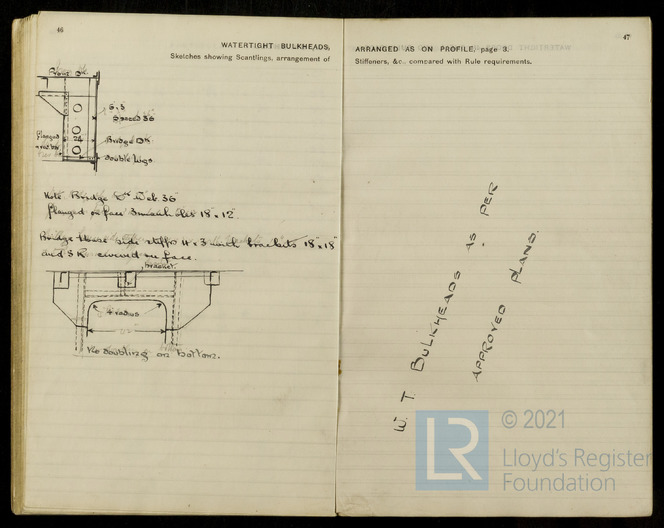 46
WATERTIGHT BULKHEADS,
Sketches showing Scantlings, arrangement of
Dk
6.3
Spaced 36
24
Flanged
Bridge Dk
Double Lugs
Note Bridge Dk Web 36"
flanged on face 3 18" x 12"
Bridge House side stiffs 4 x 3 brackets 18" x 18"
and on face.
bracket.
4" radius
No doubling on bottom.
47
ARRANGED AS ON PROFILE, page 3.
Stiffeners, &c., compared with Rule requirements.
W. T. BULKHEADS AS PER
APPROVED PLANS.
LR
© 2021
Lloyd's Register
Foundation